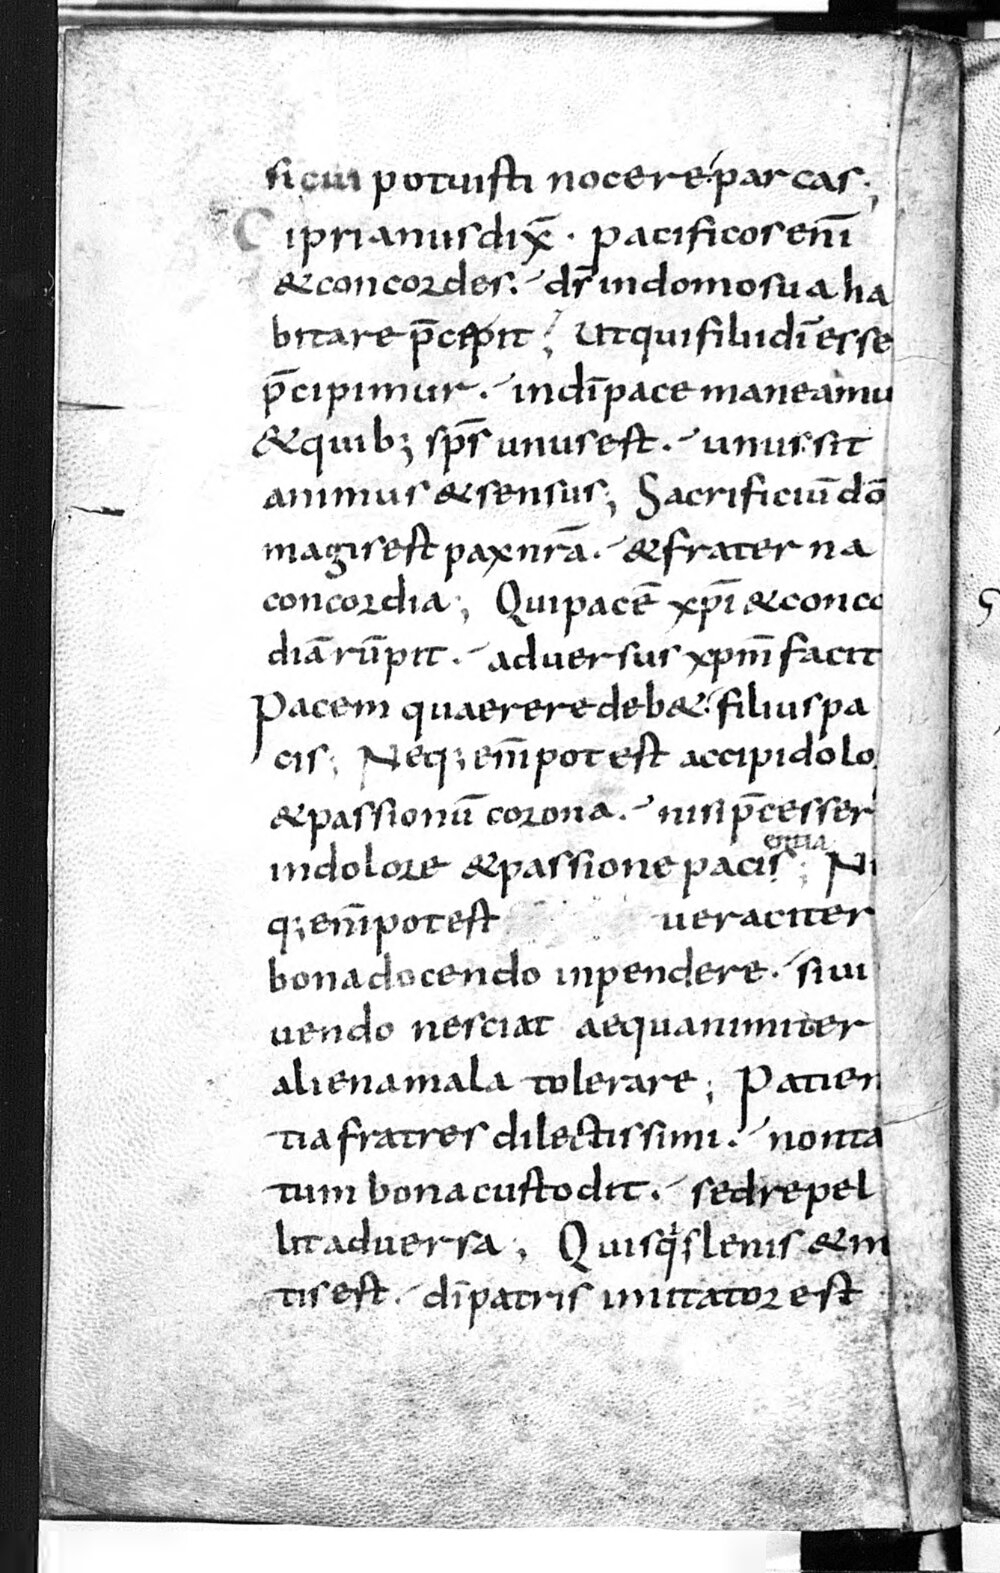 sicui potuisti nocere parcas;
Ciprianus dix̄ · pacificos enī
& concordes. dr̄ indomosua ha
bitare p̄cepit; Ut qui filii dī esse
p̄cipimur. in dī pace maneamu
& quib; sp̄s unus est. unus sit
animus & sensus; Sacrificiū dō
magis est pax nr̄a. & frater na
concordia; Qui pacē xp̄i & conco
diā rūpit. adversus xpm̄ facit
Pacem quaerere deb& filius pa
cis; Neq; enī potest accipi dolo
& passionū corona. nisi p̄cesser
in dolore & passione pacis entia; Ni
q; enī potest veraciter
bona docendo inpendere. si vi
uendo nesciat aequanimiter
aliena mala tolerare; Patien
tia fratres dilectissimi. non ta
tum bona custodit. sed repel
lit adversa; Quisq's lenis & m
tis est. dī patris imitator est